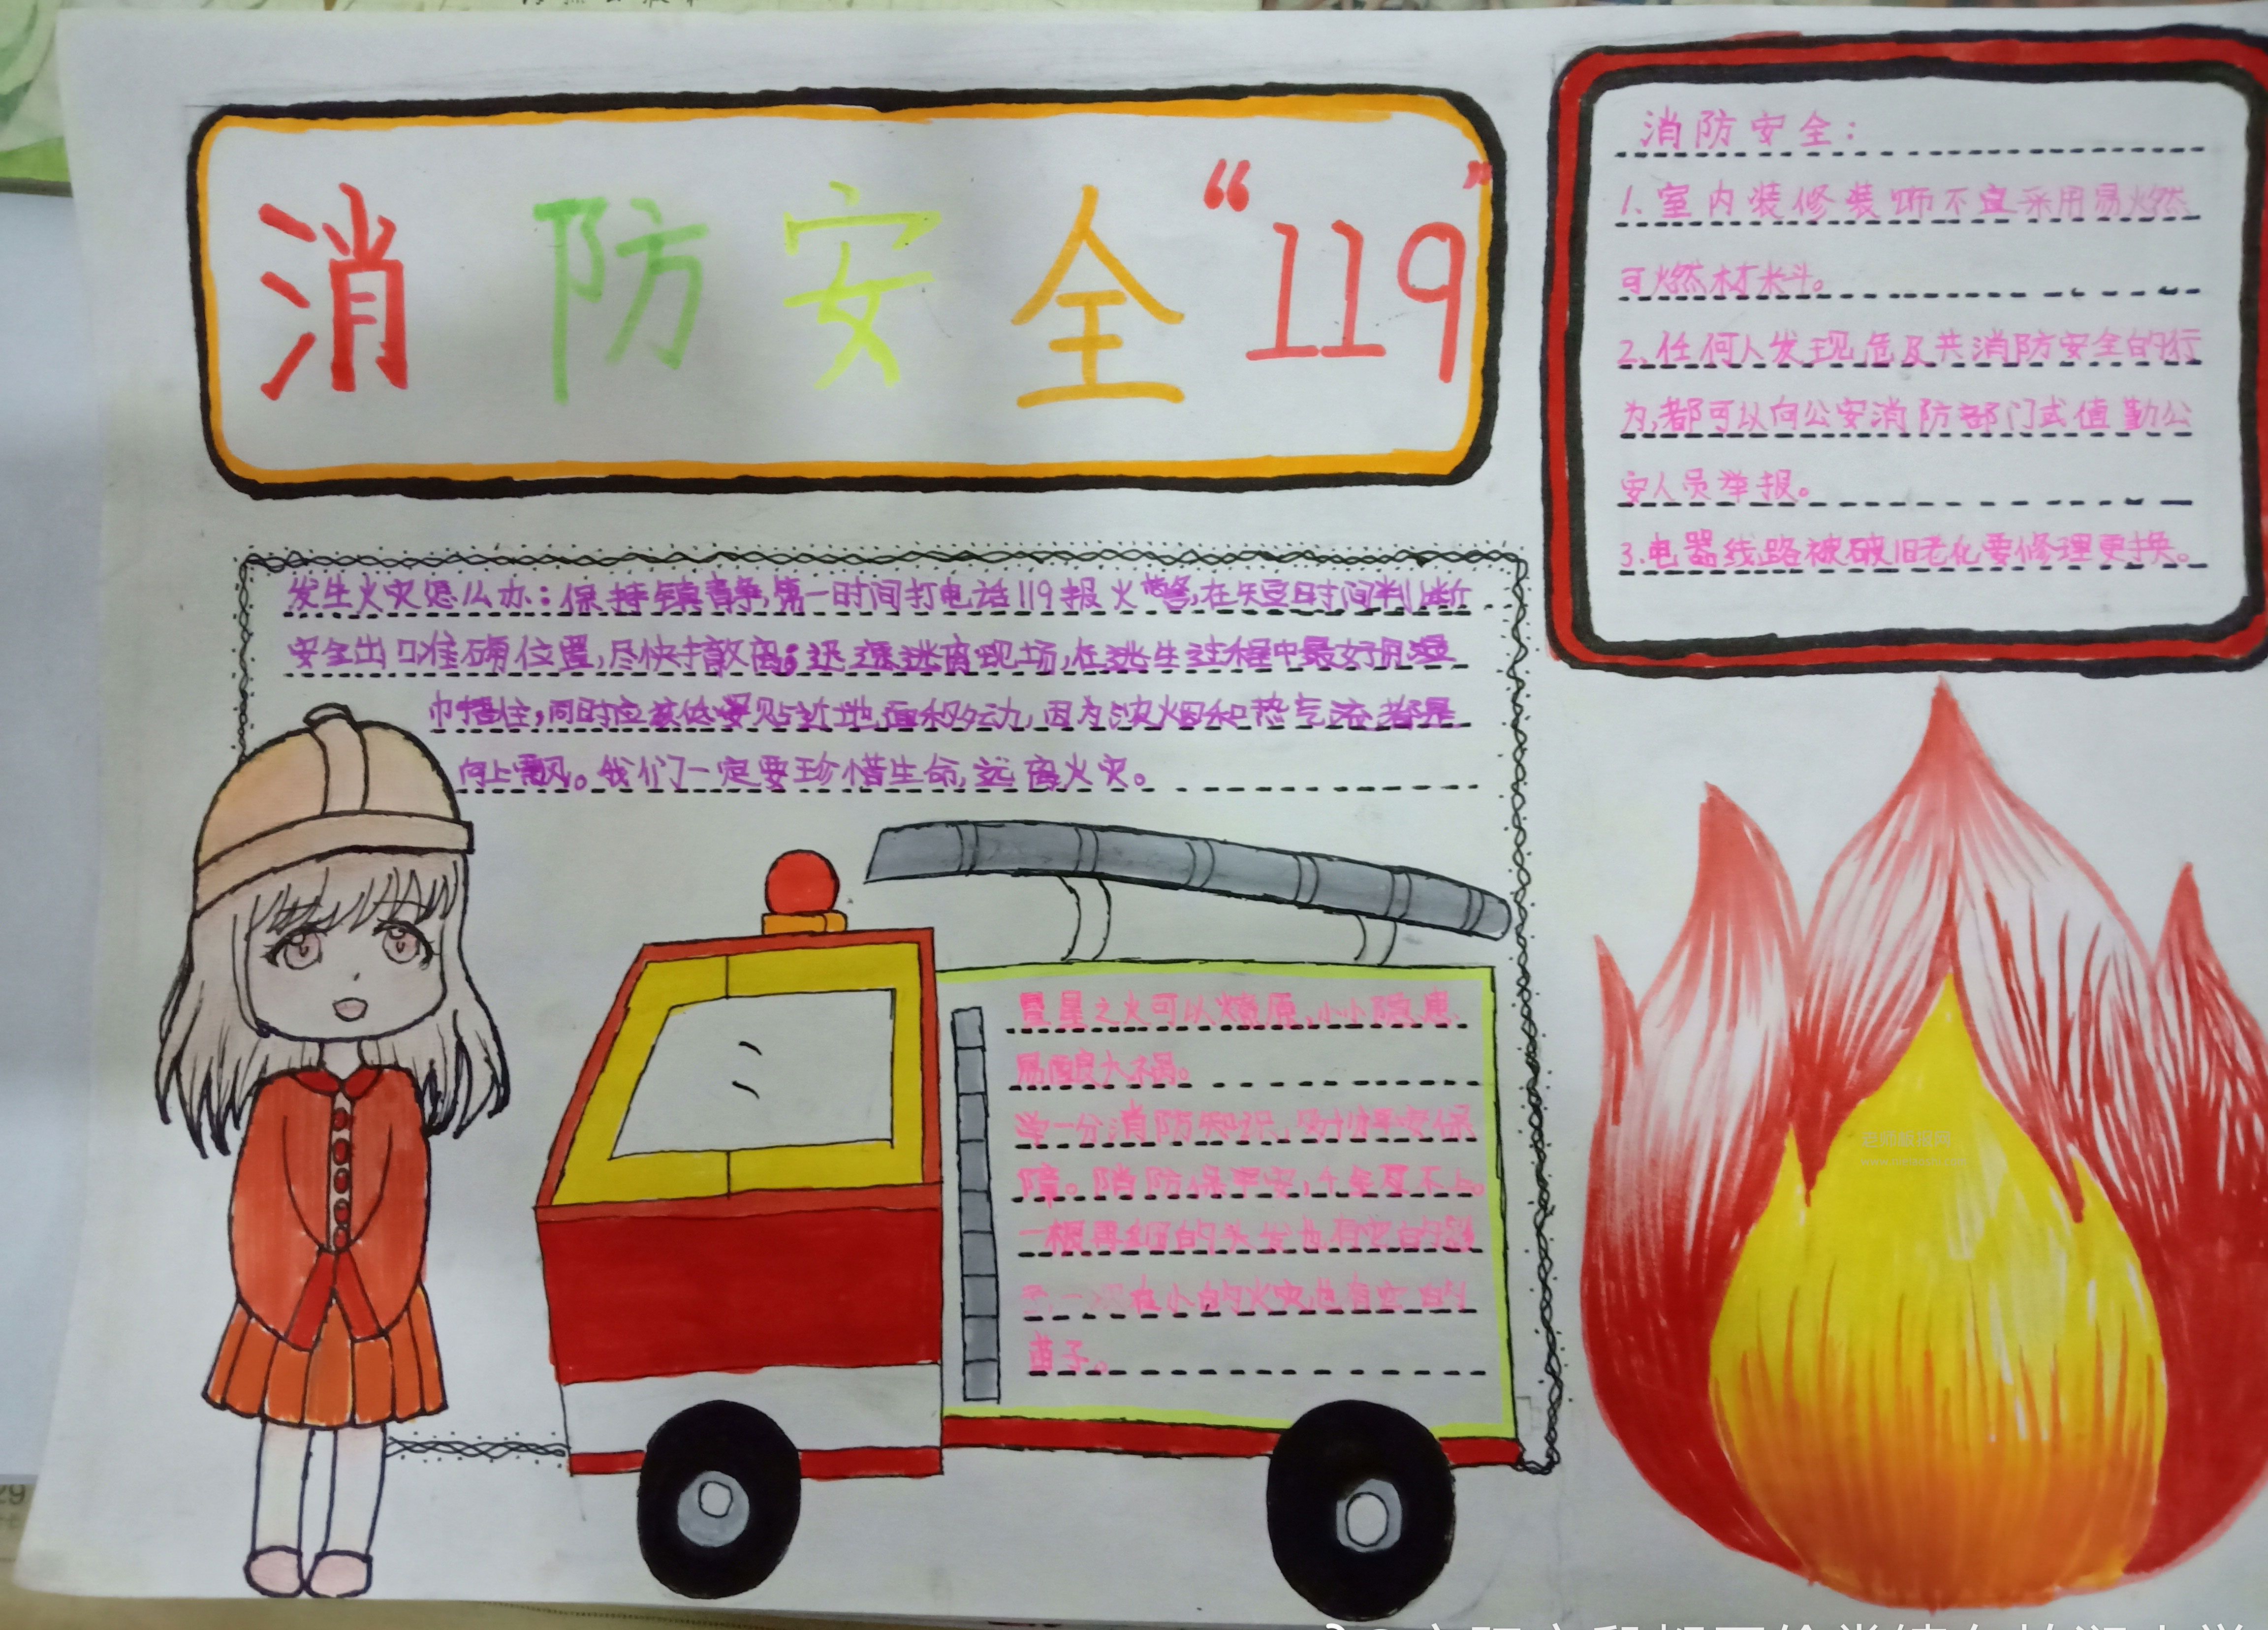 消防安全“119”
消防安全:
1.室内装修装饰不宜采用易燃
可燃材料。
2.任何人发现危及共消防安全的行
为,都可以向公安消防部门或值勤公
安人员举报。
3.电器线路被破旧老化要修理更换。
发生火灾怎么办:保持镇静,第一时间打电话119报火警,在短时间判断
安全出口准确位置,尽快撤离;迅速逃离现场,在逃生过程中最好用湿
巾捂住,同时应该低要贴近地面移动,因为浓烟和热气流都是
向上飘。我们一定要珍惜生命,远离火灾。
星星之火可以燎原,小小隐患
易酿大祸。
学一分消防知识,多十分平安保
障。消防保平安,
一根再细的头发也有它的影
在小的火灾也有它的
苗子。